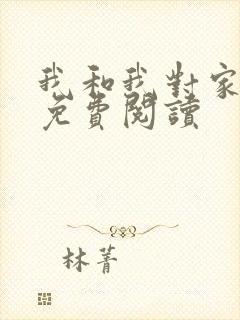 我和我對家
免費閱讀
林菁